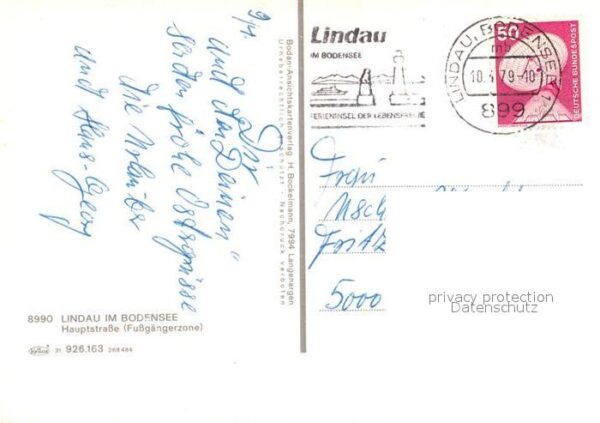 9/4
Dir
und den Deinen
senden frohe Ostergrüsse
die Urlauber
und Hans-Georg
8990 LINDAU IM BODENSEE
Hauptstraße (Fußgängerzone)
31 926.163 268484
Bodan-Ansichtskartenverlag H. Bockelmann, 7994 Langenargen
Urheberrechtlich geschützt · Nachdruck verboten
Lindau
IM BODENSEE
FERIENINSEL DER LEBENSFREUDE
LINDAU, BODENSEE 1
mb
899
50
DEUTSCHE BUNDESPOST
Frau
Fritz
5000
privacy protection
Datenschutz